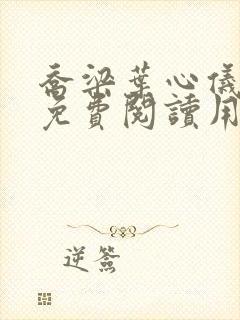 喬梁葉心儀
免費閱讀用
逆簽